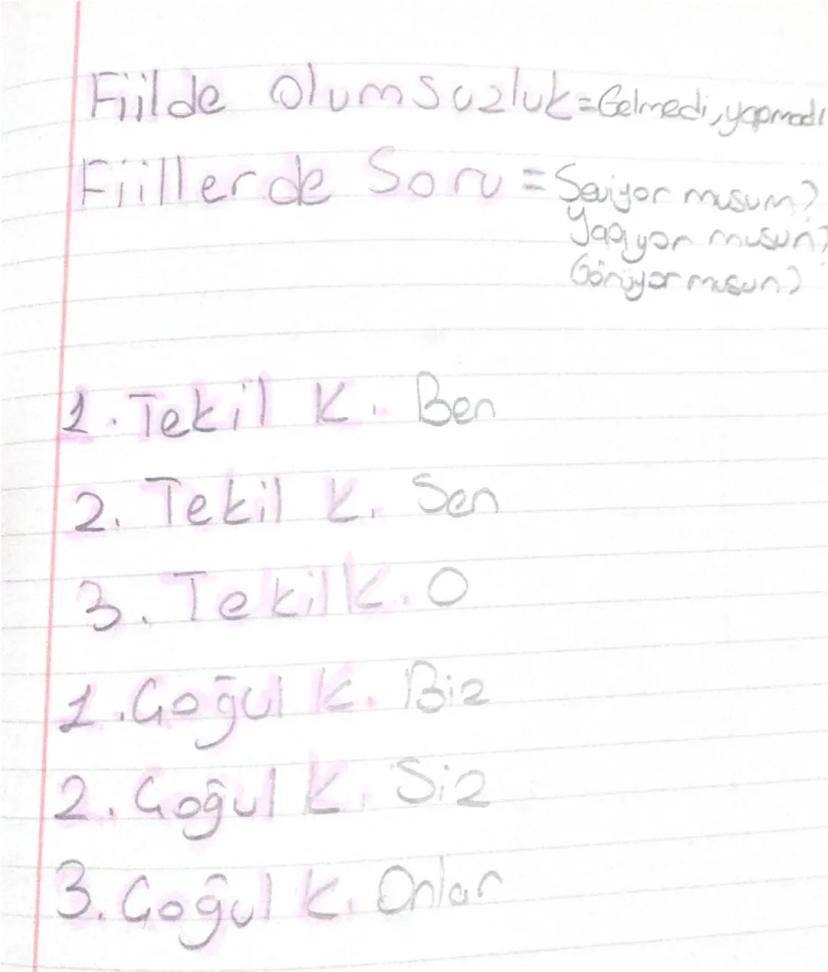 Fiilde Olumsuzluk=Gelmedi, yapmadı
Fiillerde Soru = Seviyor musum?
Yapıyor musun?
Görüyor musun?
1. Tekil K. Ben
2. Tekil K. Sen
3. Tekil K. O
1. Çoğul K. Biz
2. Çoğul K. Siz
3. Çoğul K. Onlar